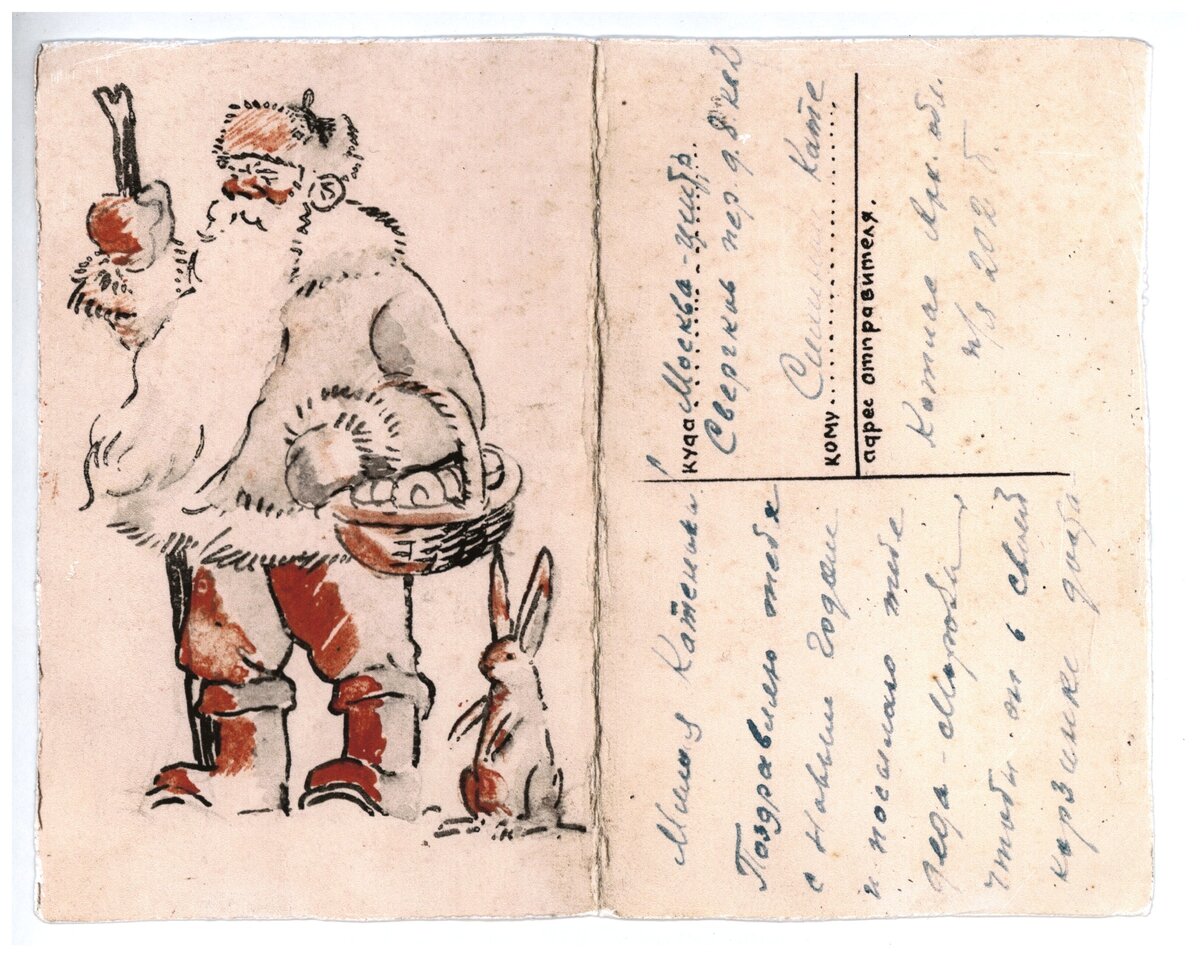 Милая Катенька!
Поздравляю тебя
с Новым Годом
и посылаю тебе
деда-Мороза
чтобы он в своей
корзинке
куда Москва-центр.
Сверчков пер. д. 8. кв 2
кому Кате
адрес отправителя.
Котлас Арх. обл.
п/я 202 б.